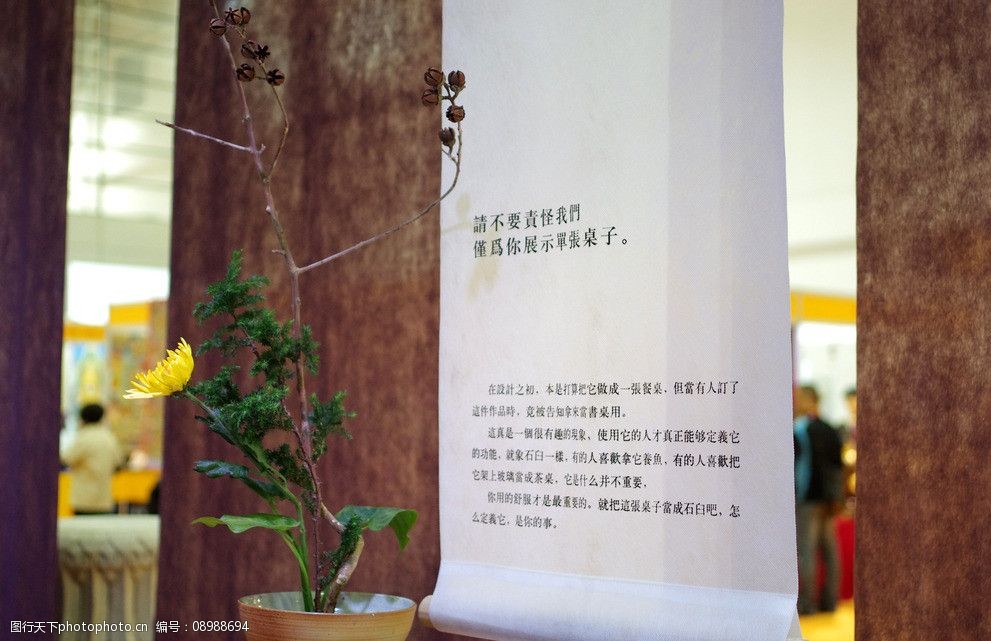 請不要責怪我們
僅爲你展示單張桌子。
在設計之初，本是打算把它做成一張餐桌，但當有人訂了
這件作品時，竟被告知拿來當書桌用。
這真是一個很有趣的現象、使用它的人才真正能够定義它
的功能，就象石臼一樣，有的人喜歡拿它養魚，有的人喜歡把
它架上玻璃當成茶桌，它是什么并不重要，
你用的舒服才是最重要的。就把這張桌子當成石臼吧，怎
么定義它，是你的事。
图行天下photophoto.cn 编号：08988694